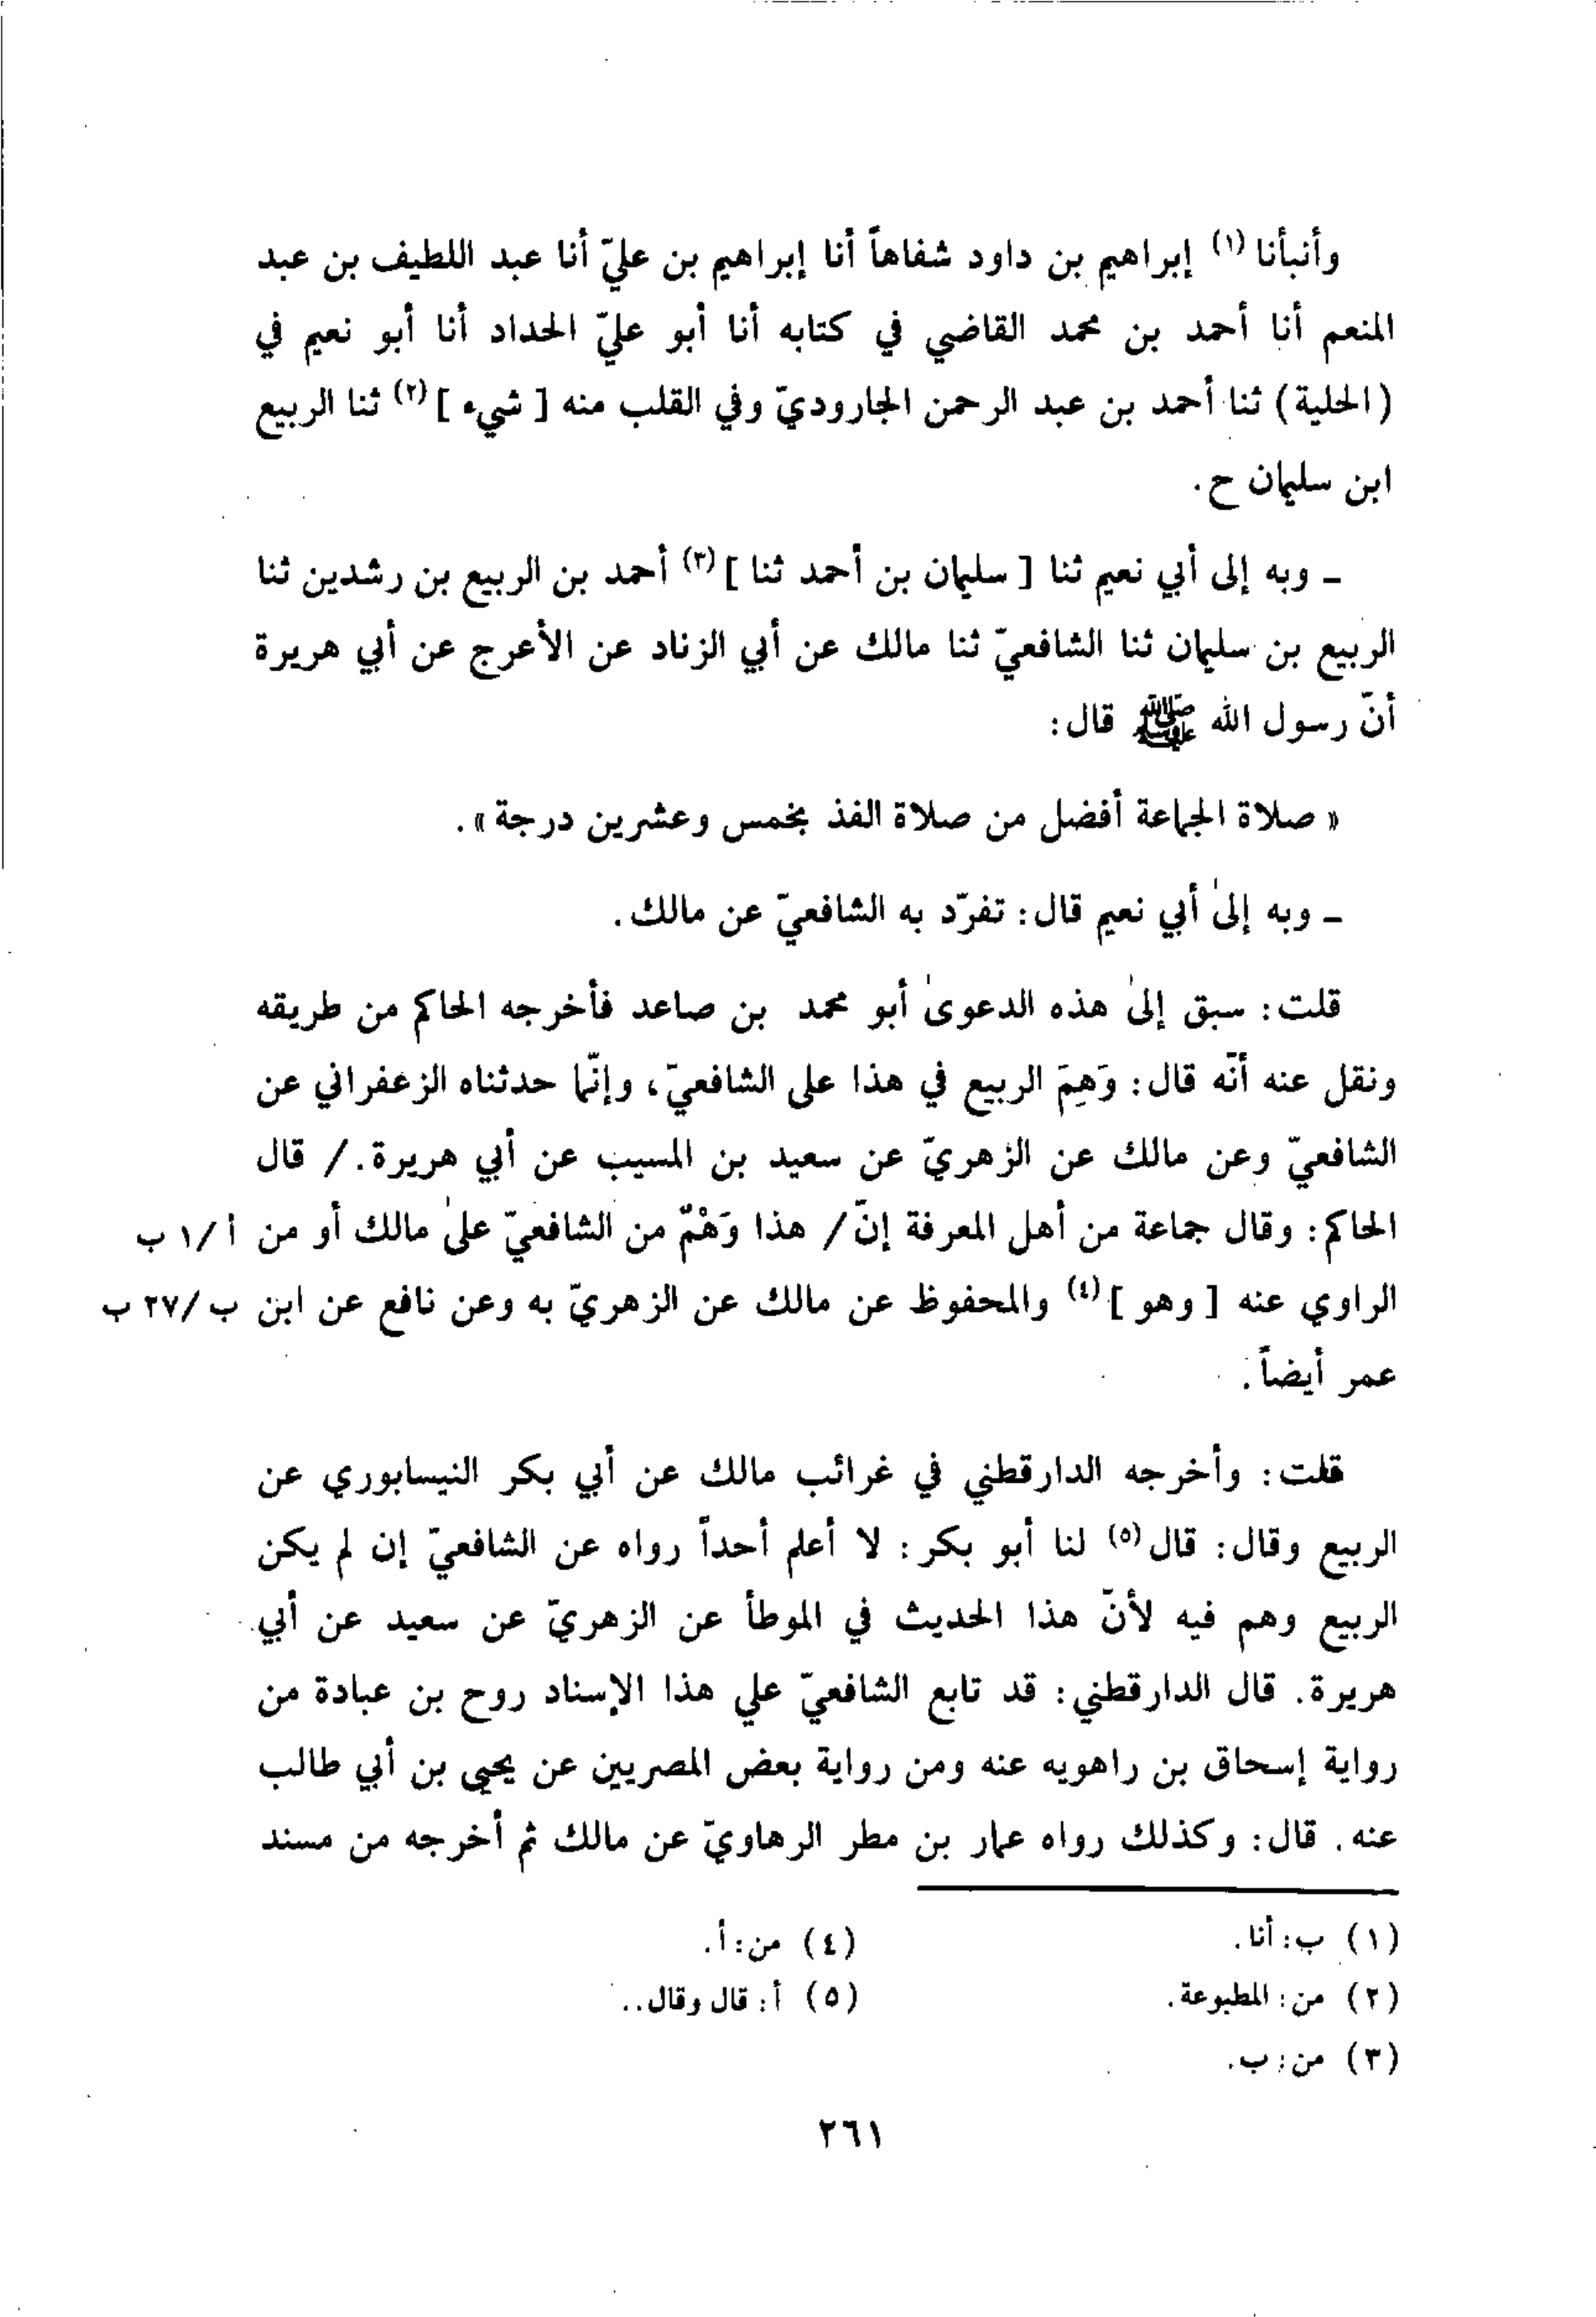 وأنبأنا (١) إبراهيم بن داود شفاهاً أنا إبراهيم بن عليّ أنا عبد اللطيف بن عبد
المنعم أنا أحمد بن محمد القاضي في كتابه أنا أبو عليّ الحداد أنا أبو نعيم في
(الحلية) ثنا أحمد بن عبد الرحمن الجاروديّ وفي القلب منه [ شيء ] (٢) ثنا الربيع
ابن سليمان ح.
ـ وبه إلى أبي نعيم ثنا [ سليمان بن أحمد ثنا ] (٣) أحمد بن الربيع بن رشدين ثنا
الربيع بن سليمان ثنا الشافعيّ ثنا مالك عن أبي الزناد عن الأعرج عن أبي هريرة
أنّ رسول الله ﷺ قال:
« صلاة الجماعة أفضل من صلاة الفذ بخمس وعشرين درجة ».
ـ وبه إلىٰ أبي نعيم قال: تفرّد به الشافعيّ عن مالك.
قلت: سبق إلىٰ هذه الدعوىٰ أبو محمد بن صاعد فأخرجه الحاكم من طريقه
ونقل عنه أنّه قال: وَهِمَ الربيع في هذا على الشافعيّ، وإنّما حدثناه الزعفراني عن
الشافعيّ وعن مالك عن الزهريّ عن سعيد بن المسيب عن أبي هريرة. / قال
الحاكم: وقال جماعة من أهل المعرفة إنّ / هذا وَهْمٌ من الشافعيّ علىٰ مالك أو من أ/١ ب
الراوي عنه [ وهو ] (٤) والمحفوظ عن مالك عن الزهريّ به وعن نافع عن ابن ب/٢٧ ب
عمر أيضاً.
قلت: وأخرجه الدارقطني في غرائب مالك عن أبي بكر النيسابوري عن
الربيع وقال: قال (٥) لنا أبو بكر: لا أعلم أحداً رواه عن الشافعيّ إن لم يكن
الربيع وهم فيه لأنّ هذا الحديث في الموطأ عن الزهريّ عن سعيد عن أبي
هريرة. قال الدارقطني: قد تابع الشافعيّ علي هذا الإسناد روح بن عبادة من
رواية إسحاق بن راهويه عنه ومن رواية بعض المصريين عن يحيي بن أبي طالب
عنه. قال: وكذلك رواه عمار بن مطر الرهاويّ عن مالك ثم أخرجه من مسند
(١) ب: أنا.
(٢) من: المطبوعة.
(٣) من: ب.
(٤) من: أ.
(٥) أ: قال وقال..
٢٦١